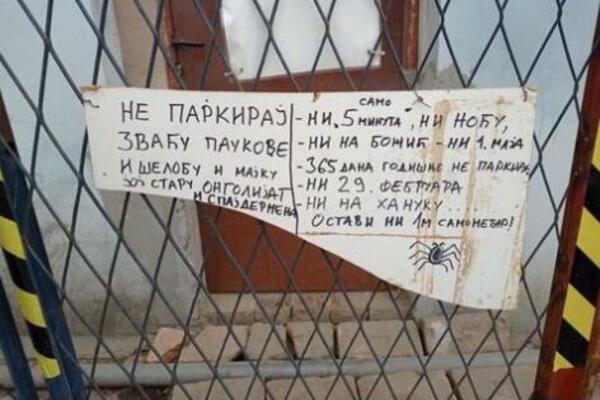 НЕ ПАРКИРАЈ
ЗВАЋУ ПАУКОВЕ
И ШЕЛОБУ И МАЈКУ
ЈОЈ СТАРУ, ОНГОЛИЈАТ
И СПАЈДЕРМЕНА
САМО
- НИ "5 МИНУТА", НИ НОЋУ,
- НИ НА БОЖИЋ - НИ 1. МАЈА
- 365 ДАНА ГОДИШЊО НЕ ПАРКИРАЈ
- НИ 29. ФЕБРУАРА
- НИ НА ХАНУКУ...
ОСТАВИ НИ 1М САМОНЕЂАО!